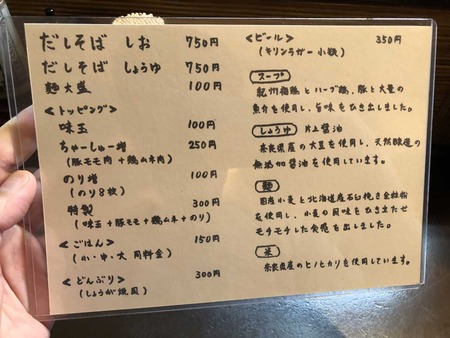 だしそば しお 750円
だしそば しょうゆ 750円
麺大盛 100円
<トッピング>
味玉 100円
ちゃーしゅー増 250円
(豚モモ肉+鶏ムネ肉)
のり増 100円
(のり8枚)
特製 300円
(味玉+豚モモ+鶏ムネ+のり)
<ごはん> 150円
(小・中・大 同料金)
<どんぶり> 300円
(しょうが焼風)
<ビール> 350円
(キリンラガー小瓶)
スープ
紀州梅鶏とハーブ鶏、豚と大量の
魚介を使用し、旨味をひき出しました。
しょうゆ 片上醤油
奈良県産の大豆を使用し、天然醸造の
無添加醤油を使用しています。
麺
国産小麦と北海道産石臼挽き全粒粉
を使用し、小麦の風味をひきたたせ
モチモチした食感を出しました。
米
奈良県産のヒノヒカリを使用しています。